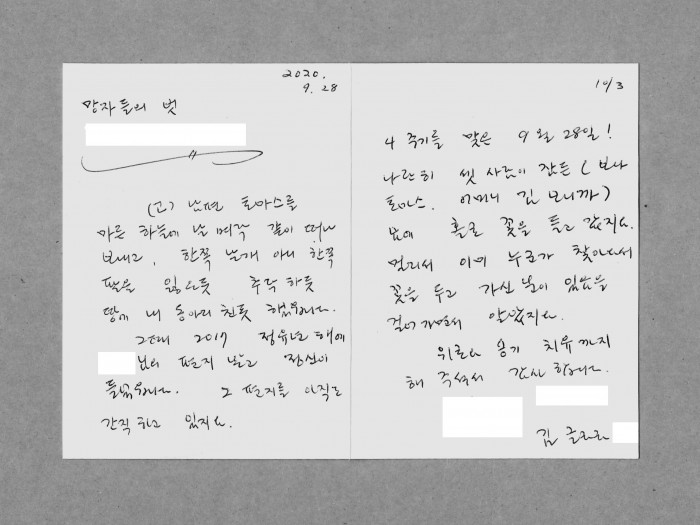 2020.
9. 28
망자들의 벗
(고) 남편 토마스를
마른 하늘에 날벼락 같이 떠나
보내고, 한쪽 날개 아니 한쪽
잃은듯 추락 하듯
땅에 내 동아리 친듯 했습니다.
그때 2017 정유년 해에
님의 편지 받고 정신이
들었습니다. 그 편지를 아직도
간직하고 있지요.
10/3
4 주기를 맞은 9월 28일!
나란히 셋 사람이 잠든 (보나
토마스. 어머니 김 모니까)
묘에 홀로 꽃을 들고 갔지요.
멀리서 이미 누군가 찾아와서
꽃을 두고 가신 분이 있었음을
걸어가면서 알았지요.
위로와 용기 치유까지
해 주셔서 감사 합니다.
김 글라라